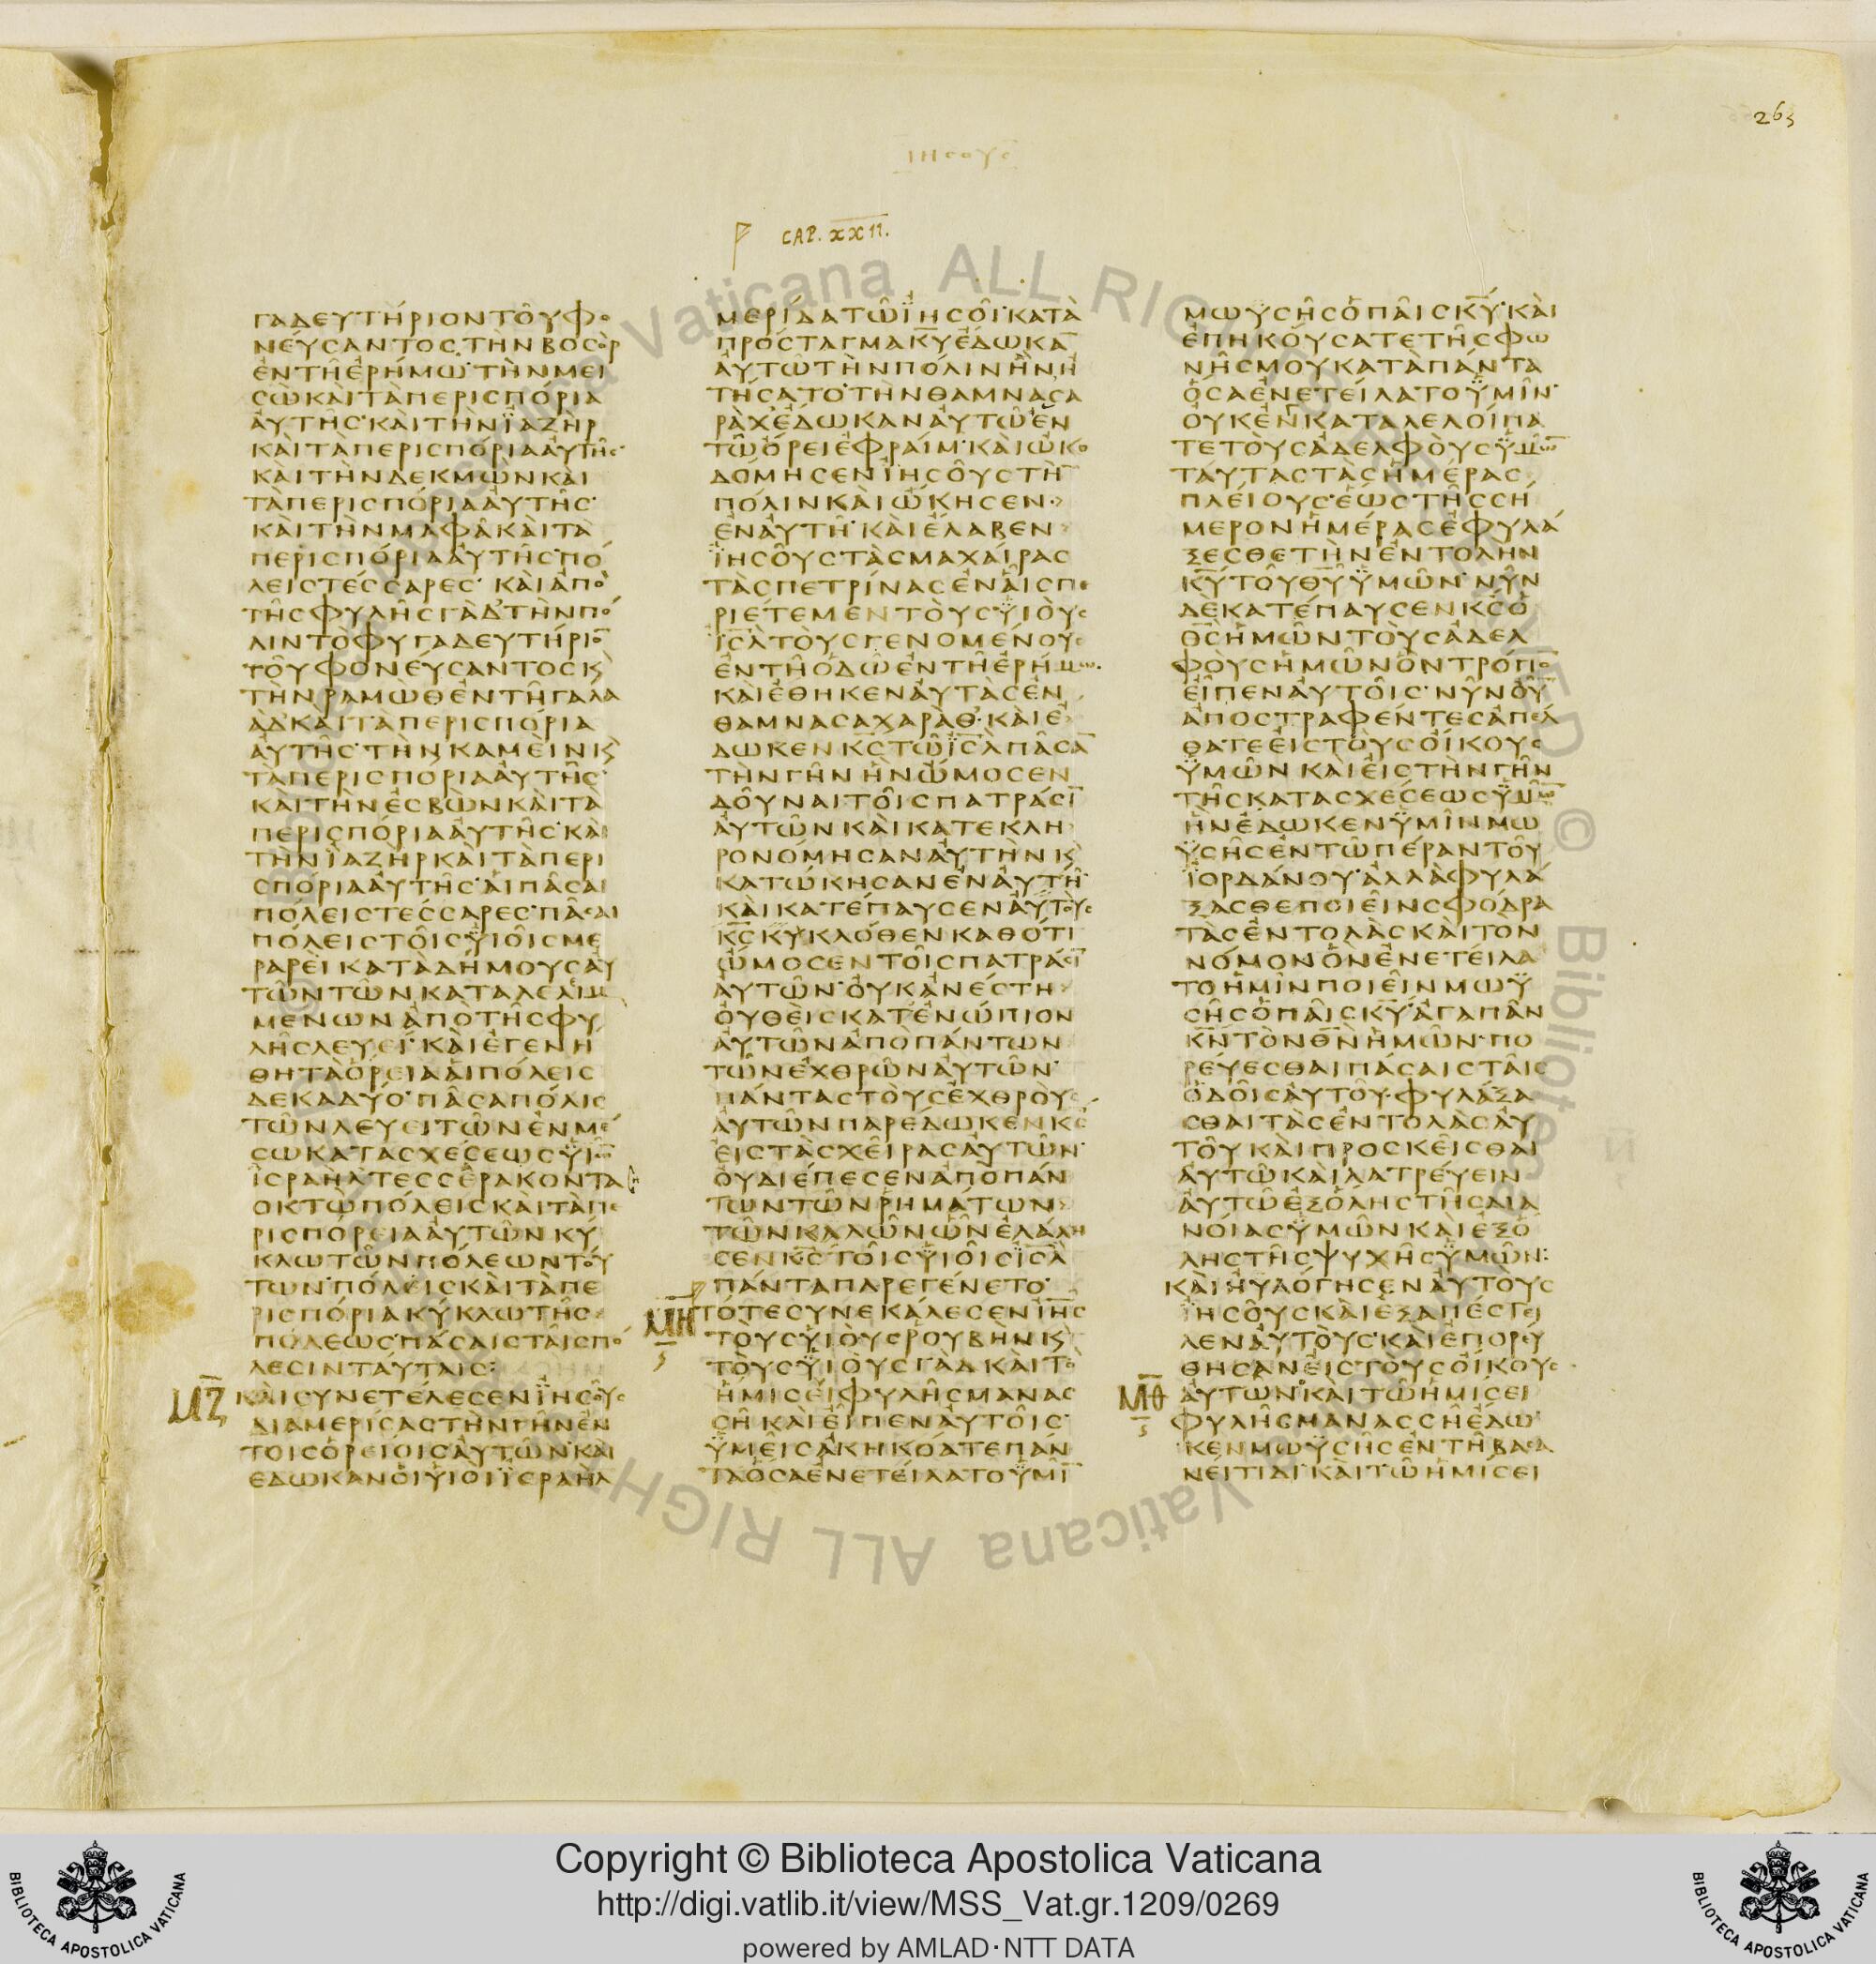 263
ΙΗΣΟΥΣ
CAP. XXII.
ΓΑΔΕΥΤΗΡΙΟΝΤΟΥΦΟ
ΝΕΥΣΑΝΤΟΣΤΗΝΒΟΣΟΡ
ΕΝΤΗΕΡΗΜΩΤΗΝΜΕΙ
ΣΩΚΑΙΤΑΠΕΡΙΣΠΟΡΙΑ
ΑΥΤΗΣΚΑΙΤΗΝΪΑΖΗΡ
ΚΑΙΤΑΠΕΡΙΣΠΟΡΙΑΑΥΤΗΣ
ΚΑΙΤΗΝΔΕΚΜΩΝΚΑΙ
ΤΑΠΕΡΙΣΠΟΡΙΑΑΥΤΗΣ
ΚΑΙΤΗΝΜΑΦΑΚΑΙΤΑ
ΠΕΡΙΣΠΟΡΙΑΑΥΤΗΣΠΟ
ΛΕΙΣΤΕΣΣΑΡΕΣ ΚΑΙΑΠΟ
ΤΗΣΦΥΛΗΣΓΑΔΤΗΝΠΟ
ΛΙΝΤΟΦΥΓΑΔΕΥΤΗΡΙΟ̅
ΤΟΥΦΟΝΕΥΣΑΝΤΟΣΚ
ΤΗΝΡΑΜΩΘΕΝΤΗΓΑΛΑ
ΑΔΚΑΙΤΑΠΕΡΙΣΠΟΡΙΑ
ΑΥΤΗΣΤΗΝΚΑΜΕΙΝΚ
ΤΑΠΕΡΙΣΠΟΡΙΑΑΥΤΗΣ
ΚΑΙΤΗΝΕΣΒΩΝΚΑΙΤΑ
ΠΕΡΙΣΠΟΡΙΑΑΥΤΗΣΚΑΙ
ΤΗΝΪΑΖΗΡΚΑΙΤΑΠΕΡΙ
ΣΠΟΡΙΑΑΥΤΗΣΑΙΠΑΣΑΙ
ΠΟΛΕΙΣΤΕΣΣΑΡΕΣΠΑΣΑΙ
ΠΟΛΕΙΣΤΟΙΣΫΙΟΙΣΜΕ
ΡΑΡΕΙΚΑΤΑΔΗΜΟΥΣΑΥ
ΤΩΝΤΩΝΚΑΤΑΛΕΛΙΜ
ΜΕΝΩΝΑΠΟΤΗΣΦΥ
ΛΗΣΛΕΥΕΙΚΑΙΕΓΕΝΗ
ΘΗΤΑΟΡΕΙΑΑΙΠΟΛΕΙΣ
ΔΕΚΑΔΥΟΠΑΣΑΠΟΛΙΣ
ΤΩΝΛΕΥΕΙΤΩΝΕΝΜΕ
ΣΩΚΑΤΑΣΧΕΣΕΩΣΫΙΩ̅
ΪΣΡΑΗΛΤΕΣΣΕΡΑΚΟΝΤΑ
ΟΚΤΩΠΟΛΕΙΣΚΑΙΤΑΠΕ
ΡΙΣΠΟΡΕΙΑΑΥΤΩΝΚΥ
ΚΛΩΤΩΝΠΟΛΕΩΝΤΟΥ
ΤΩΝΠΟΛΕΙΣΚΑΙΤΑΠΕ
ΡΙΣΠΟΡΙΑΚΥΚΛΩΤΗΣ
ΠΟΛΕΩΣΠΑΣΑΙΣΤΑΙΣΠΟ
ΛΕΣΙΝΤΑΥΤΑΙΣ:
ΜΖ ΚΑΙΣΥΝΕΤΕΛΕΣΕΝΪΗΣΟΥΣ
ΔΙΑΜΕΡΙΣΑΣΤΗΝΓΗΝΕΝ
ΤΟΙΣΟΡΕΙΟΙΣΑΥΤΩΝΚΑΙ
ΕΔΩΚΑΝΟΙΫΙΟΙΪΣΡΑΗΛ
ΜΕΡΙΔΑΤΩΪΗΣΟΙΚΑΤΑ
ΠΡΟΣΤΑΓΜΑΚ̅Υ̅ΕΔΩΚΑ̅
ΑΥΤΩΤΗΝΠΟΛΙΝΗΝΗ
ΤΗΣΑΤΟΤΗΝΘΑΜΝΑΣΑ
ΡΑΧΕΔΩΚΑΝΑΥΤΩΕΝ
ΤΩΟΡΕΙΕΦΡΑΙΜΚΑΙΩΚΟ
ΔΟΜΗΣΕΝΪΗΣΟΥΣΤΗ̅
ΠΟΛΙΝΚΑΙΩΚΗΣΕΝ
ΕΝΑΥΤΗΚΑΙΕΛΑΒΕΝ
ΪΗΣΟΥΣΤΑΣΜΑΧΑΙΡΑΣ
ΤΑΣΠΕΤΡΙΝΑΣΕΝΑΙΣΠΕ
ΡΙΕΤΕΜΕΝΤΟΥΣΫΙΟΥΣ
Ϊ̅Σ̅Λ̅ΤΟΥΣΓΕΝΟΜΕΝΟΥΣ
ΕΝΤΗΟΔΩΕΝΤΗΕΡΗΜΩ
ΚΑΙΕΘΗΚΕΝΑΥΤΑΣΕΝ
ΘΑΜΝΑΣΑΧΑΡΑΘΚΑΙΕ
ΔΩΚΕΝΚ̅Σ̅ΤΩΪ̅Σ̅Λ̅ΠΑΣΑ̅
ΤΗΝΓΗΝΗΝΩΜΟΣΕΝ
ΔΟΥΝΑΙΤΟΙΣΠΑΤΡΑΣΙ̅
ΑΥΤΩΝΚΑΙΚΑΤΕΚΛΗ
ΡΟΝΟΜΗΣΑΝΑΥΤΗΝΚ
ΚΑΤΩΚΗΣΑΝΕΝΑΥΤΗ
ΚΑΙΚΑΤΕΠΑΥΣΕΝΑΥΤΟΥΣ
Κ̅Σ̅ΚΥΚΛΟΘΕΝΚΑΘΟΤΙ
ΩΜΟΣΕΝΤΟΙΣΠΑΤΡΑΣΙ̅
ΑΥΤΩΝΟΥΚΑΝΕΣΤΗ
ΟΥΘΕΙΣΚΑΤΕΝΩΠΙΟΝ
ΑΥΤΩΝΑΠΟΠΑΝΤΩΝ
ΤΩΝΕΧΘΡΩΝΑΥΤΩΝ
ΠΑΝΤΑΣΤΟΥΣΕΧΘΡΟΥΣ
ΑΥΤΩΝΠΑΡΕΔΩΚΕΝΚ̅Σ̅
ΕΙΣΤΑΣΧΕΙΡΑΣΑΥΤΩΝ
ΟΥΔΙΕΠΕΣΕΝΑΠΟΠΑΝ
ΤΩΝΤΩΝΡΗΜΑΤΩΝ
ΤΩΝΚΑΛΩΝΩΝΕΛΑΛΗ
ΣΕΝΚ̅Σ̅ΤΟΙΣΫΙΟΙΣΪ̅Σ̅Λ̅
ΠΑΝΤΑΠΑΡΕΓΕΝΕΤΟ
ΜΗ ΤΟΤΕΣΥΝΕΚΑΛΕΣΕΝΪ̅Η̅Σ̅
ΤΟΥΣΫΙΟΥΣΡΟΥΒΗΝΚ
ΤΟΥΣΫΙΟΥΣΓΑΔΚΑΙΤΟ
ΗΜΙΣΕΙΦΥΛΗΣΜΑΝΑΣ
ΣΗΚΑΙΕΙΠΕΝΑΥΤΟΙΣ
ΫΜΕΙΣΑΚΗΚΟΑΤΕΠΑΝ
ΤΑΟΣΑΕΝΕΤΕΙΛΑΤΟΫΜΙ̅
ΜΩΫΣΗΣΟΠΑΙΣΚ̅Υ̅ΚΑΙ
ΕΠΗΚΟΥΣΑΤΕΤΗΣΦΩ
ΝΗΣΜΟΥΚΑΤΑΠΑΝΤΑ
ΟΣΑΕΝΕΤΕΙΛΑΤΟΫΜΙΝ
ΟΥΚΕΝΚΑΤΑΛΕΛΟΙΠΑ
ΤΕΤΟΥΣΑΔΕΛΦΟΥΣΫΜΩ̅
ΤΑΥΤΑΣΤΑΣΗΜΕΡΑΣ
ΠΛΕΙΟΥΣΕΩΣΤΗΣΣΗ
ΜΕΡΟΝΗΜΕΡΑΣΕΦΥΛΑ
ΞΕΣΘΕΤΗΝΕΝΤΟΛΗΝ
Κ̅Υ̅ΤΟΥΘ̅Υ̅ΫΜΩΝΝΥΝ
ΔΕΚΑΤΕΠΑΥΣΕΝΚ̅Σ̅Ο
Θ̅Σ̅ΗΜΩΝΤΟΥΣΑΔΕΛ
ΦΟΥΣΗΜΩΝΟΝΤΡΟΠΟ̅
ΕΙΠΕΝΑΥΤΟΙΣΝΥΝΟΥ̅
ΑΠΟΣΤΡΑΦΕΝΤΕΣΑΠΕΛ
ΘΑΤΕΕΙΣΤΟΥΣΟΙΚΟΥΣ
ΫΜΩΝΚΑΙΕΙΣΤΗΝΓΗΝ
ΤΗΣΚΑΤΑΣΧΕΣΕΩΣΫΜΩ̅
ΗΝΕΔΩΚΕΝΫΜΙΝΜΩ
ΫΣΗΣΕΝΤΩΠΕΡΑΝΤΟΥ
ΪΟΡΔΑΝΟΥΑΛΛΑΦΥΛΑ
ΞΑΣΘΕΠΟΙΕΙΝΣΦΟΔΡΑ
ΤΑΣΕΝΤΟΛΑΣΚΑΙΤΟΝ
ΝΟΜΟΝΟΝΕΝΕΤΕΙΛΑ
ΤΟΗΜΙΝΠΟΙΕΙΝΜΩΫ
ΣΗΣΟΠΑΙΣΚ̅Υ̅ΑΓΑΠΑΝ
Κ̅Ν̅ΤΟΝΘ̅Ν̅ΗΜΩΝΠΟ
ΡΕΥΕΣΘΑΙΠΑΣΑΙΣΤΑΙΣ
ΟΔΟΙΣΑΥΤΟΥΦΥΛΑΞΑ
ΣΘΑΙΤΑΣΕΝΤΟΛΑΣΑΥ
ΤΟΥΚΑΙΠΡΟΣΚΕΙΣΘΑΙ
ΑΥΤΩΚΑΙΛΑΤΡΕΥΕΙΝ
ΑΥΤΩΕΞΟΛΗΣΤΗΣΔΙΑ
ΝΟΙΑΣΫΜΩΝΚΑΙΕΞΟ
ΛΗΣΤΗΣΨΥΧΗΣΫΜΩΝ:
ΚΑΙΗΥΛΟΓΗΣΕΝΑΥΤΟΥΣ
ΪΗΣΟΥΣΚΑΙΕΞΑΠΕΣΤΕΙ
ΛΕΝΑΥΤΟΥΣΚΑΙΕΠΟΡΕΥ
ΘΗΣΑΝΕΙΣΤΟΥΣΟΙΚΟΥΣ
ΜΘ ΑΥΤΩΝΚΑΙΤΩΗΜΙΣΕΙ
ΦΥΛΗΣΜΑΝΑΣΣΗΕΔΩ
ΚΕΝΜΩΫΣΗΣΕΝΤΗΒΑΣΑ
ΝΕΙΤΙΔΙΚΑΙΤΩΗΜΙΣΕΙ
Copyright © Biblioteca Apostolica Vaticana
http://digi.vatlib.it/view/MSS_Vat.gr.1209/0269
powered by AMLAD·NTT DATA
BIBLIOTECA APOSTOLICA VATICANA
BIBLIOTECA APOSTOLICA VATICANA